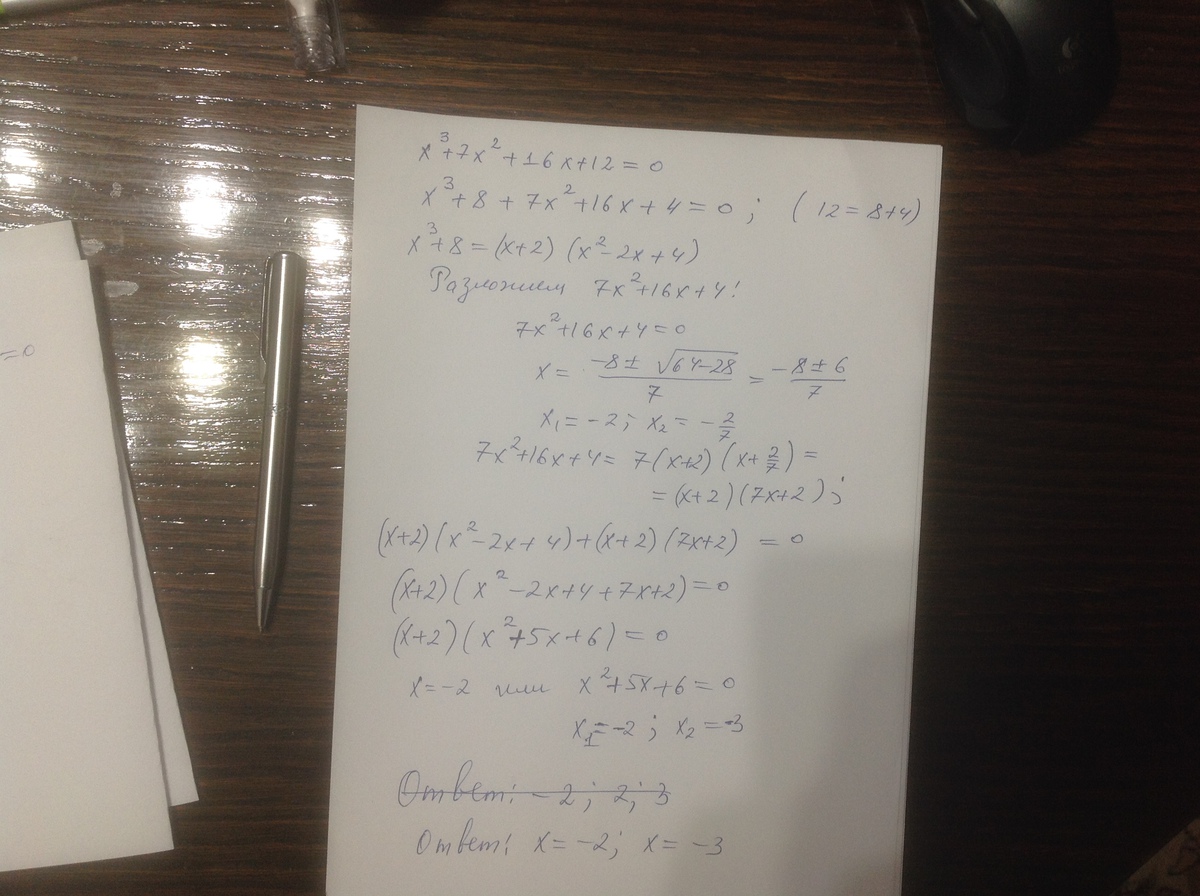 =0
x³+7x²+16x+12=0
x³+8+7x²+16x+4=0; (12=8+4)
x³+8=(x+2)(x²-2x+4)
Разложим 7x²+16x+4!
7x²+16x+4=0
x = (-8±√(64-28))/7 = (-8±6)/7
x₁=-2; x₂=-2/7
7x²+16x+4=7(x+2)(x+2/7)=
=(x+2)(7x+2);
(x+2)(x²-2x+4)+(x+2)(7x+2)=0
(x+2)(x²-2x+4+7x+2)=0
(x+2)(x²+5x+6)=0
x=-2 или x²+5x+6=0
x₁=-2; x₂=-3
Ответ: -2; 2; 3
Ответ: x=-2; x=-3